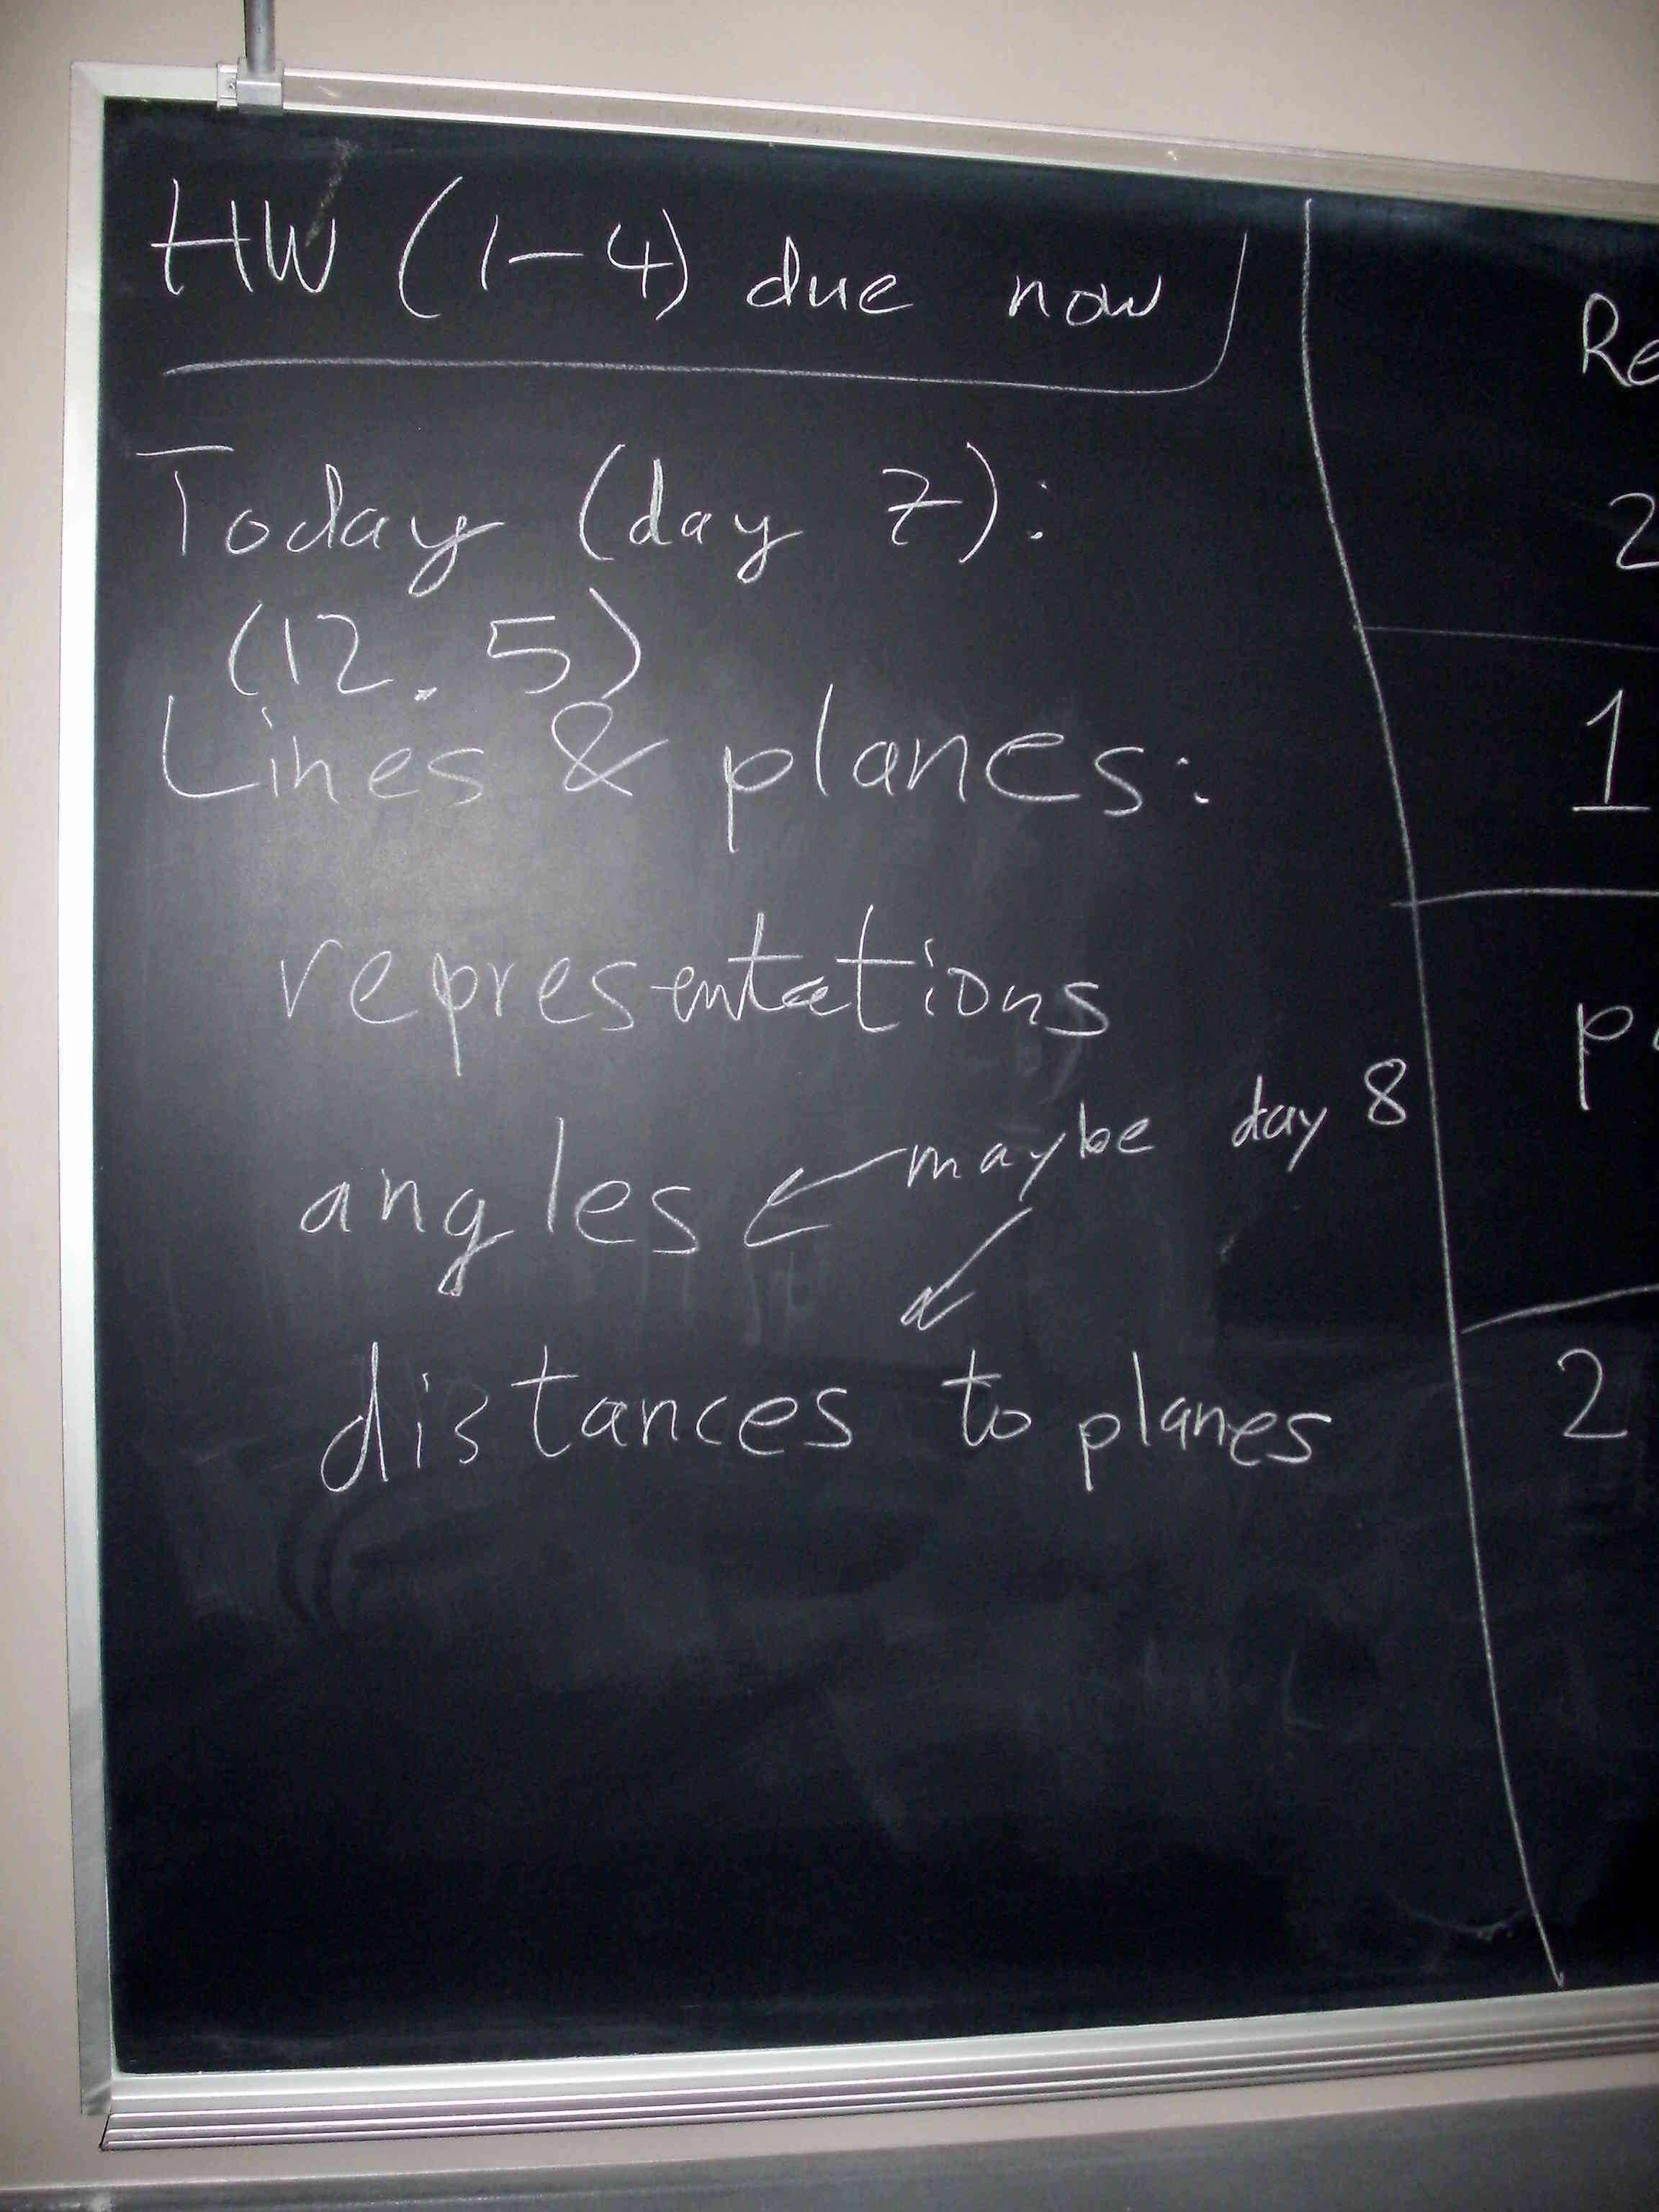 HW (1-4) due now
Today (day 7):
(12.5)
Lines & planes:
representations
angles ← maybe day 8
distances to planes
2
1
2